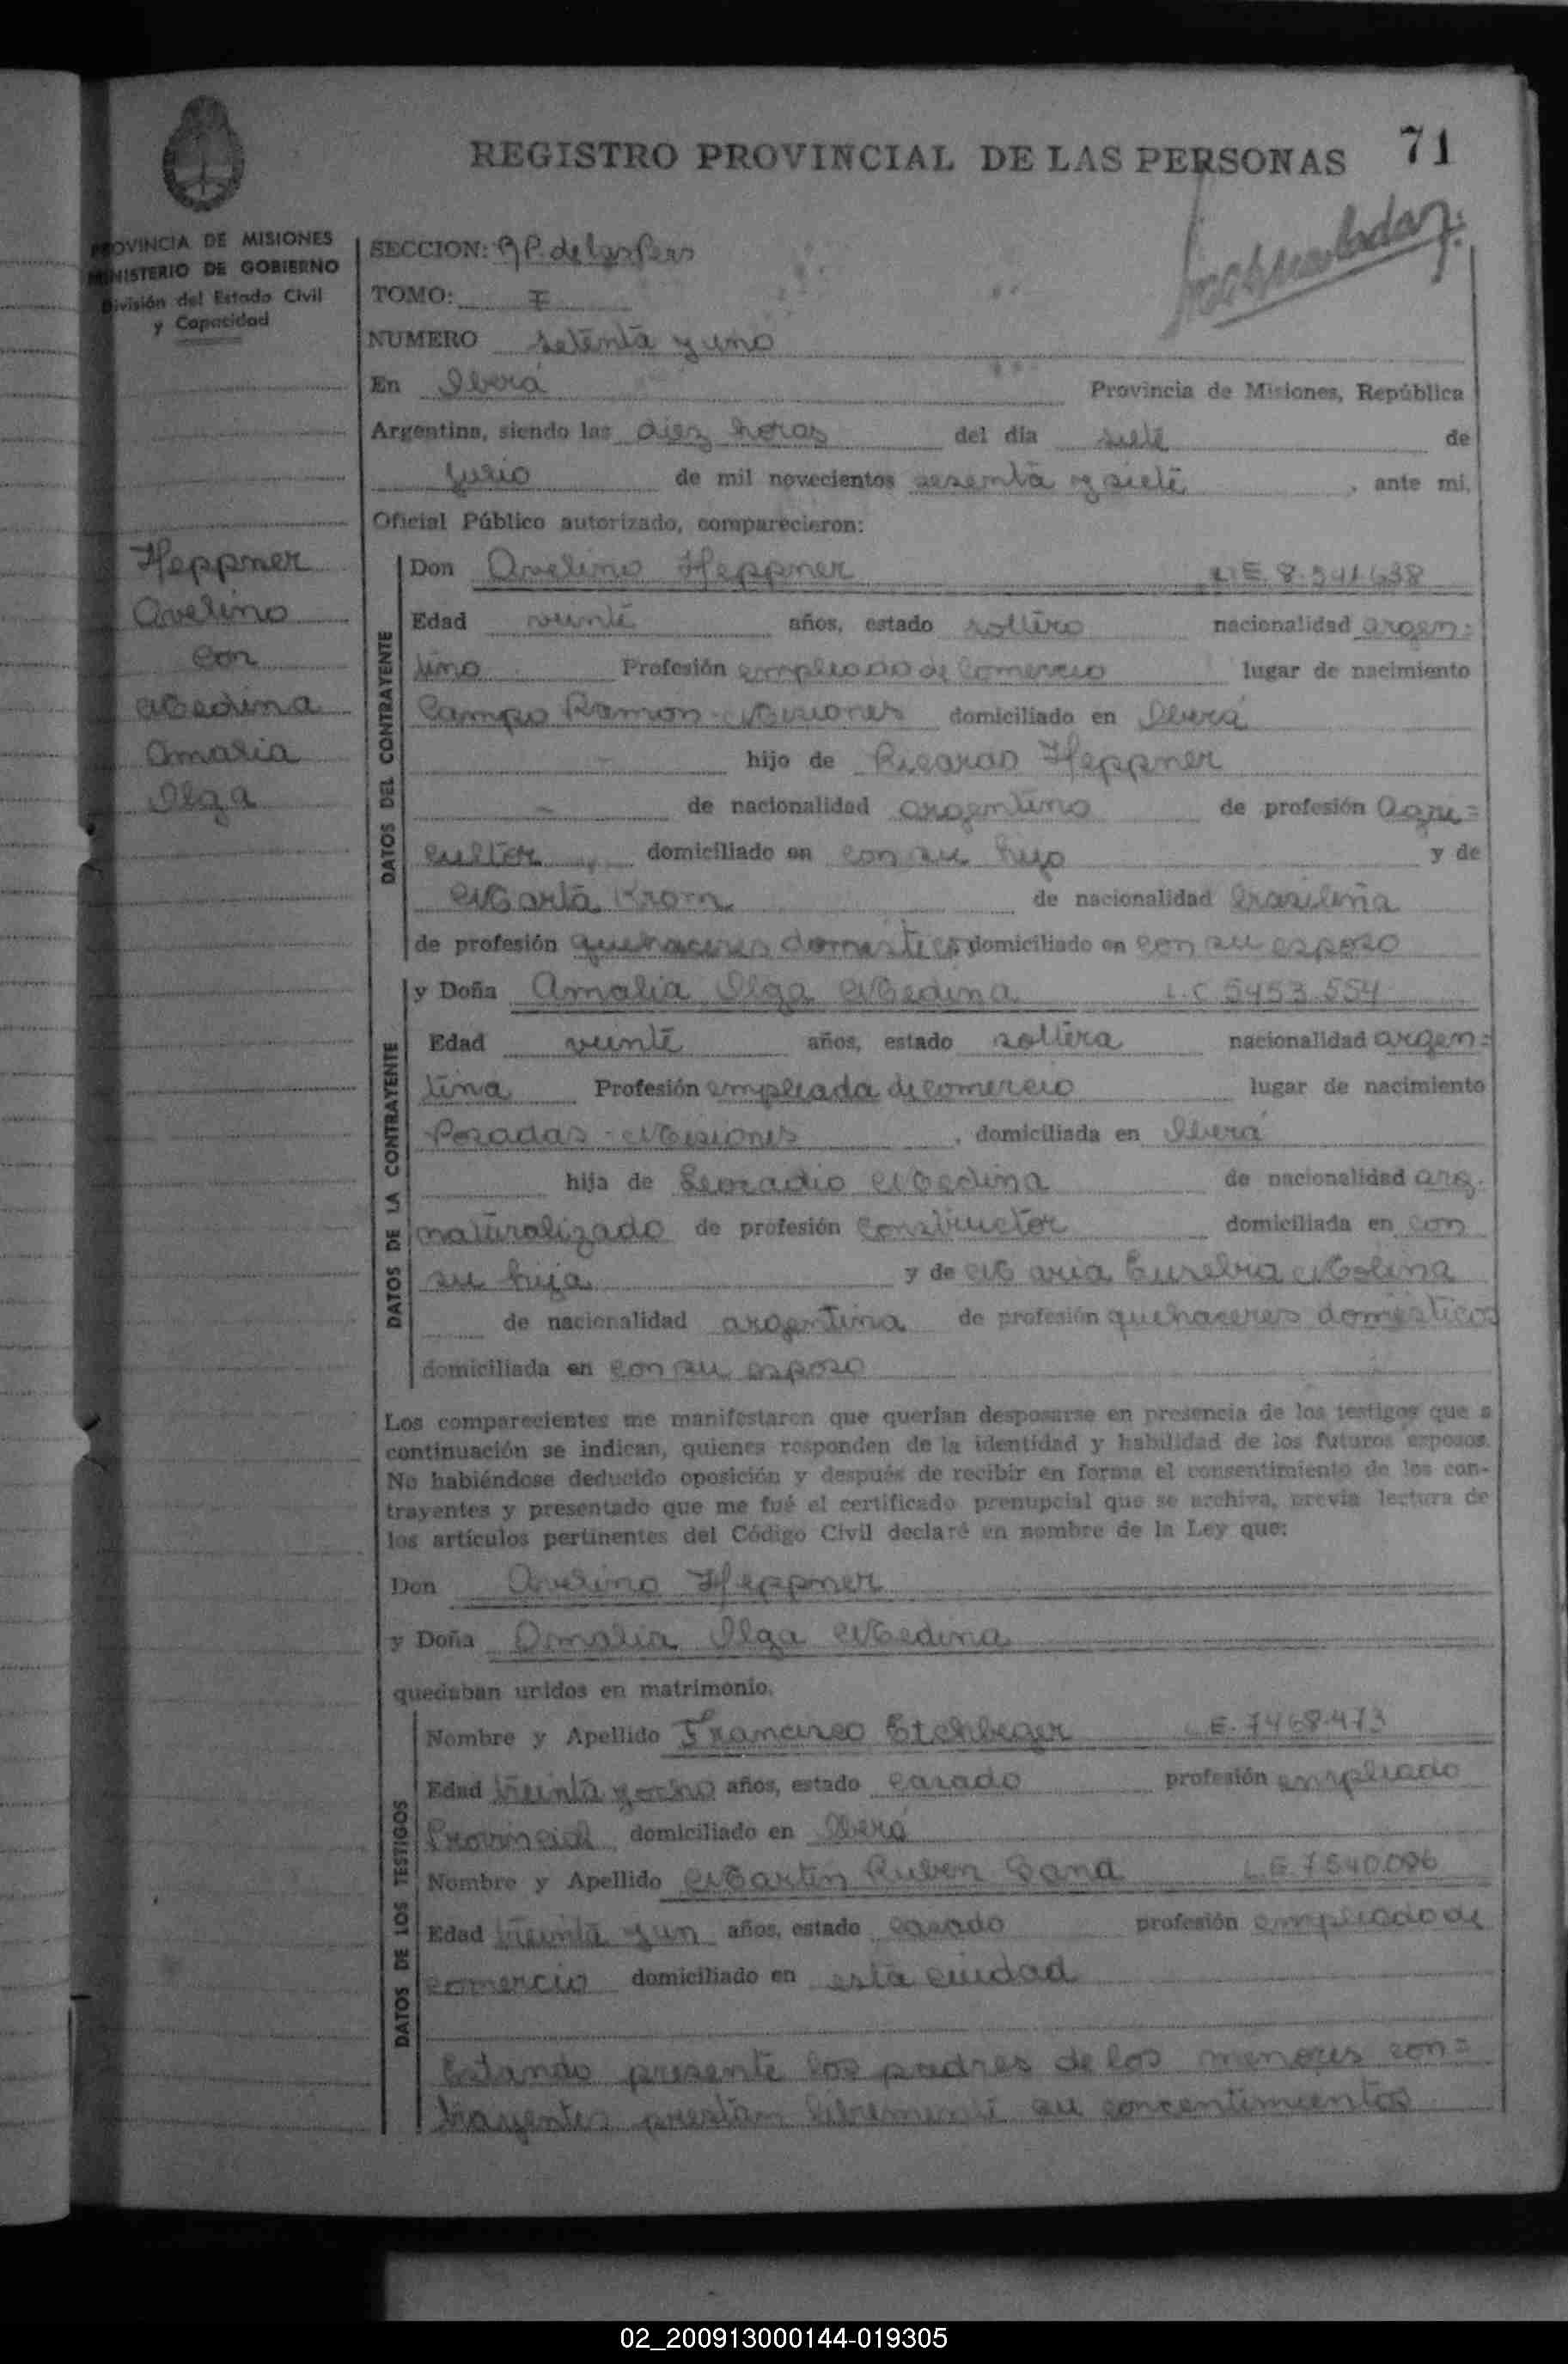 REGISTRO PROVINCIAL DE LAS PERSONAS 71
PROVINCIA DE MISIONES
MINISTERIO DE GOBIERNO
División del Estado Civil
y Capacidad
SECCION: R P. de las Pers
TOMO: I
NUMERO setenta y uno
En Oberá Provincia de Misiones, República
Argentina, siendo las diez horas del día siete de
Julio de mil novecientos sesenta y siete, ante mi,
Oficial Público autorizado, comparecieron:
Heppner
Avelino
con
Medina
Amalia
Olga
DATOS DEL CONTRAYENTE
Don Avelino Heppner L.E. 8.541.638
Edad veinte años, estado soltero nacionalidad argen=
tino Profesión empleado de Comercio lugar de nacimiento
Campo Ramon - Misiones domiciliado en Oberá
hijo de Ricardo Heppner
de nacionalidad argentino de profesión Agri=
cultor, domiciliado en con su hijo y de
Marta Krom de nacionalidad brasileña
de profesión quehaceres domesticos domiciliado en con su esposo
DATOS DE LA CONTRAYENTE
y Doña Amalia Olga Medina L.C 5453.554
Edad veinte años, estado soltera nacionalidad argen=
tina Profesión empleada de comercio lugar de nacimiento
Posadas - Misiones, domiciliada en Oberá
hija de Leocadio Medina de nacionalidad arg.
naturalizado de profesión constructor domiciliada en con
su hija y de Maria Eusebia Molina
de nacionalidad argentina de profesión quehaceres domésticos
domiciliada en con su esposo
Los comparecientes me manifestaron que querían desposarse en presencia de los testigos que a
continuación se indican, quienes responden de la identidad y habilidad de los futuros esposos.
No habiéndose deducido oposición y después de recibir en forma el consentimiento de los con-
trayentes y presentado que me fué el certificado prenupcial que se archiva, previa lectura de
los artículos pertinentes del Código Civil declaré en nombre de la Ley que:
Don Avelino Heppner
y Doña Amalia Olga Medina
quedaban unidos en matrimonio.
DATOS DE LOS TESTIGOS
Nombre y Apellido Francisco Etchbeger L.E. 7468.473
Edad treinta y ocho años, estado casado profesión empleado
Provincial domiciliado en Oberá
Nombre y Apellido Martin Ruben Dana L.E. 7540.096
Edad treinta y un años, estado casado profesión empleado de
comercio domiciliado en esta ciudad
Estando presente los padres de los menores con=
trayentes prestan libremente su concentimientos
02_200913000144-019305